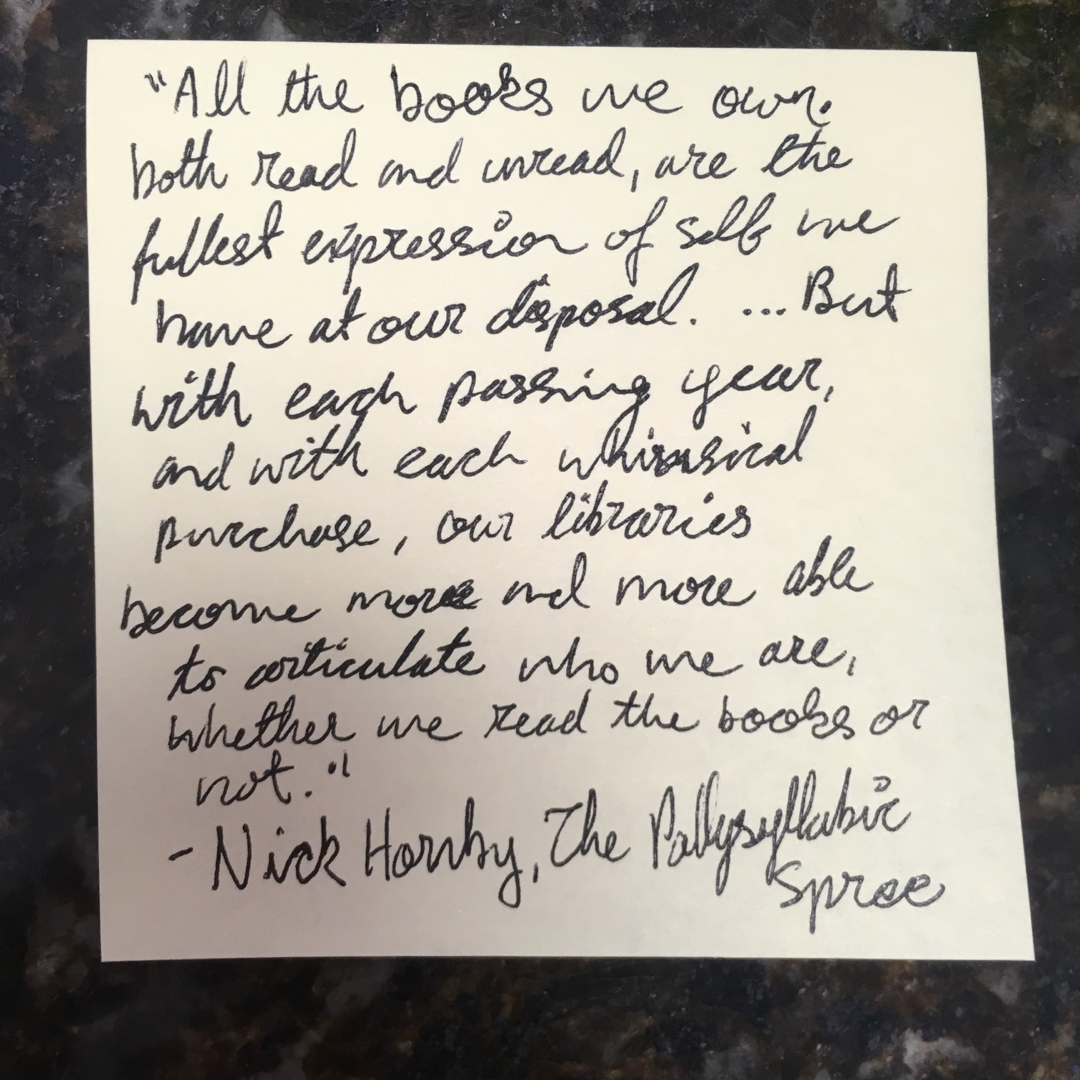 "All the books we own.
both read and unread, are the
fullest expression of self we
have at our disposal. ... But
with each passing year,
and with each whimsical
purchase, our libraries
become more and more able
to articulate who we are,
whether we read the books or
not."
- Nick Hornby, The Pollysyllabic
Spree